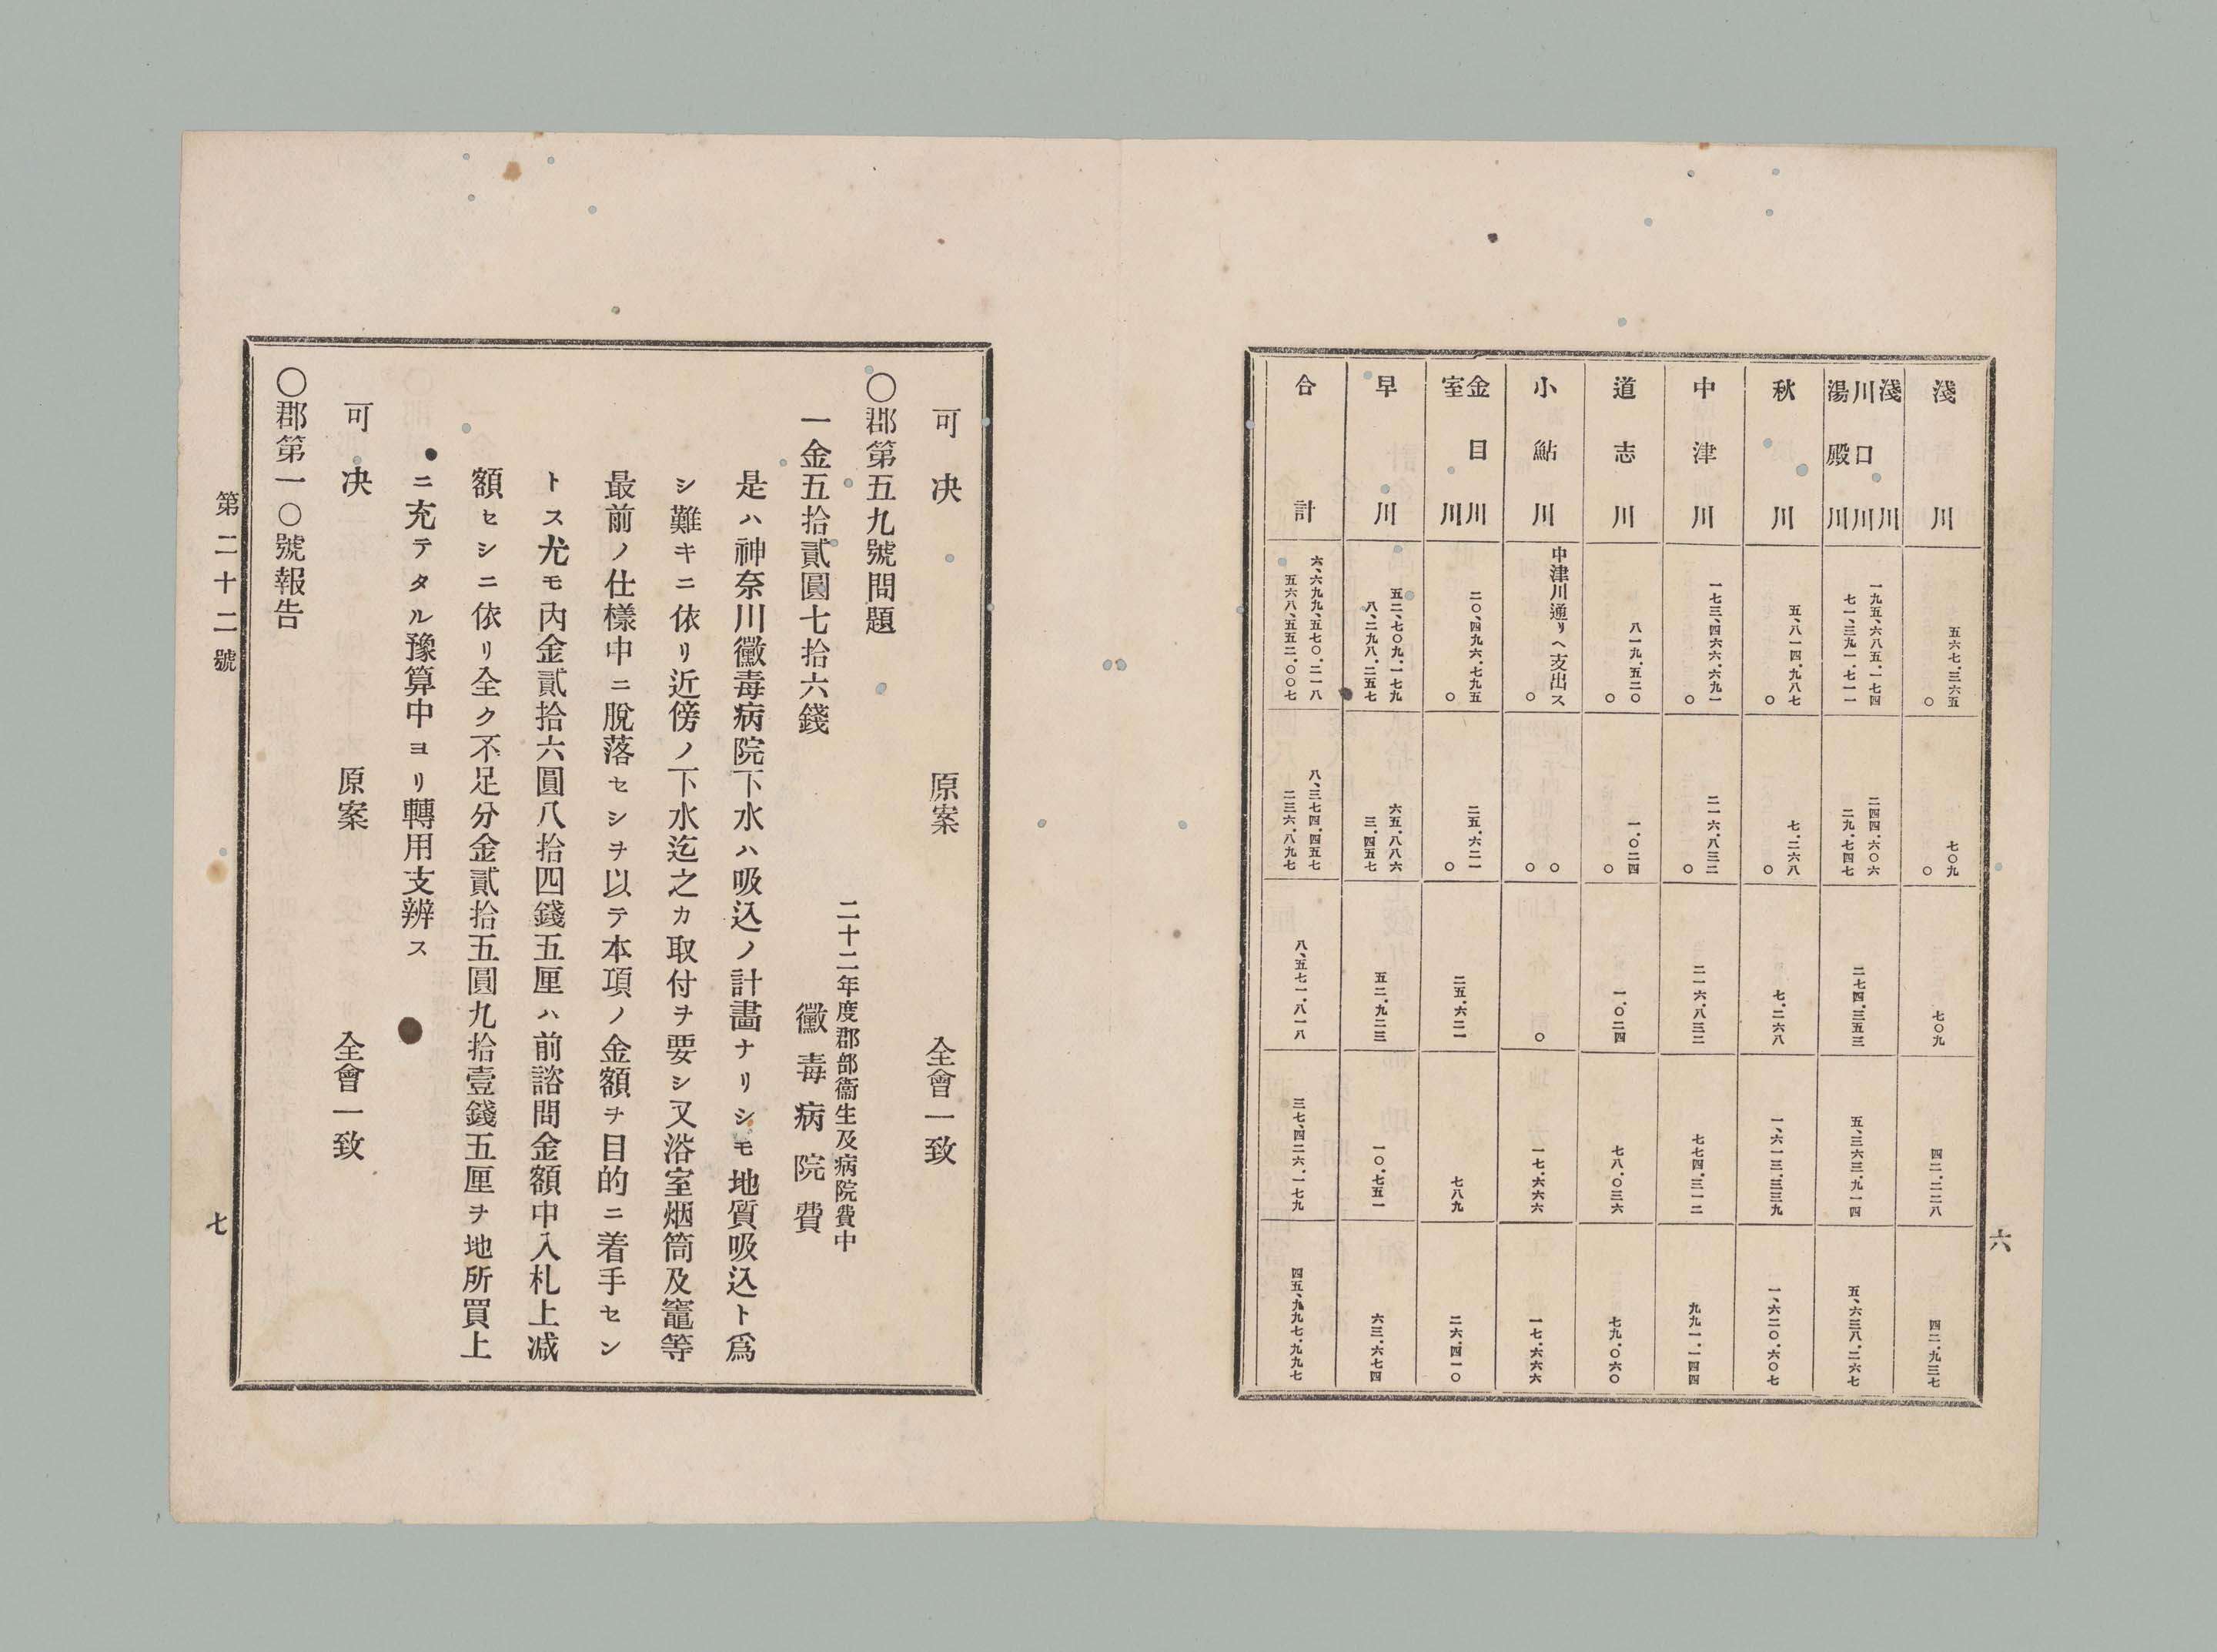 六
淺川
五六七.三六五
〇
七〇九
〇
七〇九
四二.二二八
四二.九三七
淺川
川口川
湯殿川
一九五、六八五.一七四
七一、三九一.七一一
二四四.六〇六
二九.七四七
二七四.三五三
五、三六三.九一四
五、六三八.二六七
秋川
五、八一四.九八七
〇
七.二六八
〇
七.二六八
一、六一三.三三九
一、六二〇.六〇七
中津川
一七三、四六六.六九一
〇
二一六.八三二
〇
二一六.八三二
七七四.三一二
九九一.一四四
道志川
八一九.五二〇
〇
一.〇二四
〇
一.〇二四
七八.〇三六
七九.〇六〇
小鮎川
中津川通リヘ支出ス
〇
〇
〇
〇
一七.六六六
一七.六六六
金目川
室川
二〇、四九六.七九五
〇
二五.六二一
〇
二五.六二一
七八九
二六.四一〇
早川
五二、七〇九.一七九
八、二九八.二五七
六五.八八六
三.四五七
五二.九二三
一〇.七五一
六三.六七四
合計
六、六九九、五七〇.二一八
五六八、五五二.〇〇七
八、三七四.四五七
二三六.八九七
八、五七一.八一八
三七、四二六.一七九
四五、九九七.九九七
可决 原案 全會一致
〇郡第五九號問題
二十二年度郡部衞生及病院費中
一金五拾貳圓七拾六錢 黴毒病院費
是ハ神奈川黴毒病院下水ハ吸込ノ計畵ナリシモ地質吸込ト爲
シ難キニ依リ近傍ノ下水迄之カ取付ヲ要シ又浴室烟筒及竈等
最前ノ仕樣中ニ脫落セシヲ以テ本項ノ金額ヲ目的ニ着手セン
トス尤モ內金貳拾六圓八拾四錢五厘ハ前諮問金額中入札上减
額セシニ依リ全ク不足分金貳拾五圓九拾壹錢五厘ヲ地所買上
ニ充テタル豫算中ヨリ轉用支辨ス
可决 原案 全會一致
〇郡第一〇號報告
第二十二號 七